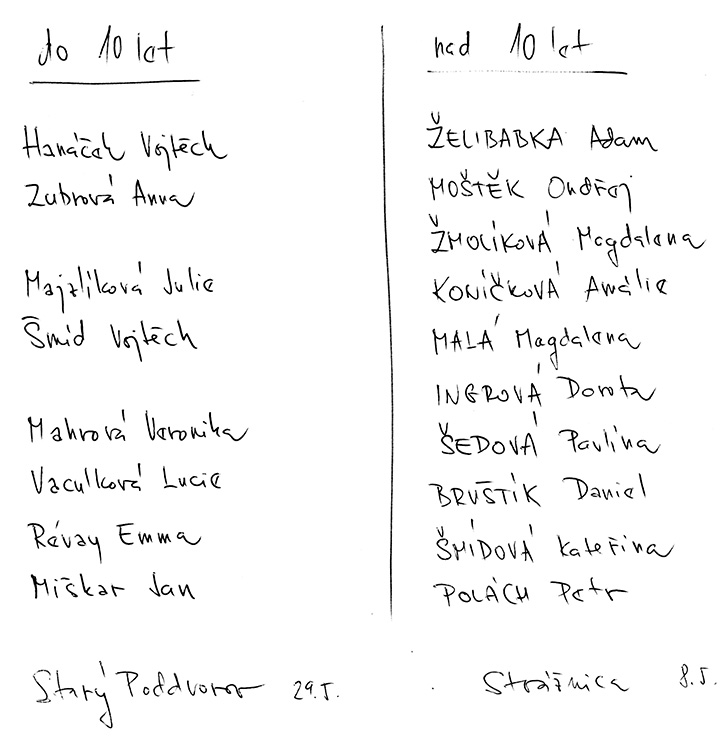 do 10 let
Hanáček Vojtěch
Zubrová Anna
Majzlíková Julie
Šmíd Vojtěch
Mahrová Veronika
Vaculková Lucie
Révay Emma
Miškar Jan
Starý Poddvorov 29.5.
nad 10 let
ŽELIBABKA Adam
MOŠTĚK Ondřej
ŽMOLÍKOVÁ Magdalena
KONÍČKOVÁ Amálie
MALÁ Magdalena
INGROVÁ Dorota
ŠEDOVÁ Pavlína
BRUŠTÍK Daniel
ŠMÍDOVÁ Kateřina
POLÁCH Petr
Strážnice 8.5.